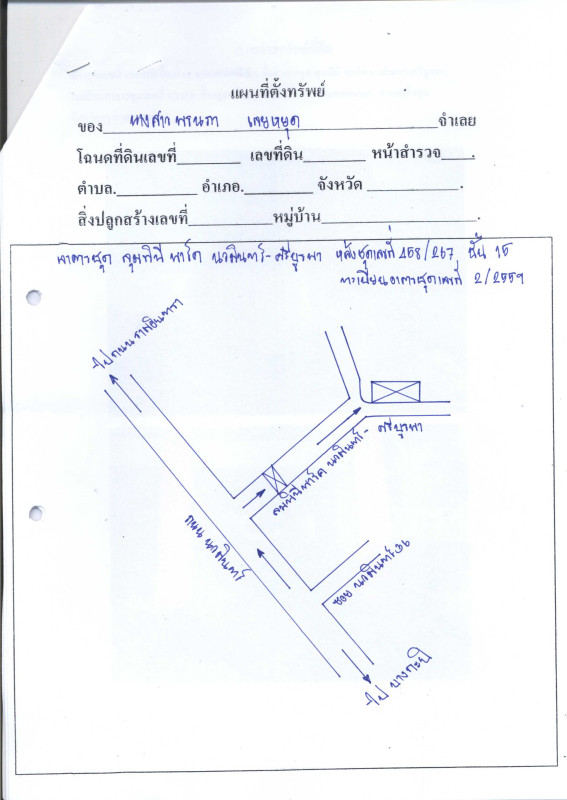 แผนที่ตั้งทรัพย์
ของ นางสาว พรนภา จำเลย
โฉนดที่ดินเลขที่ เลขที่ดิน หน้าสำรวจ .
ตำบล. อำเภอ. จังหวัด .
สิ่งปลูกสร้างเลขที่ หมู่บ้าน .
อาคารชุด ลุมพินี พาร์ค นวมินทร์-ศรีบูรพา ห้องชุดเลขที่ 458/267 ชั้น 15
ทะเบียนอาคารชุดเลขที่ 2/2559
ไปถนนรามอินทรา
ลุมพินีพาร์ค นวมินทร์- ศรีบูรพา
ถนน นวมินทร์
ซอย นวมินทร์
ไป บางกะปิ